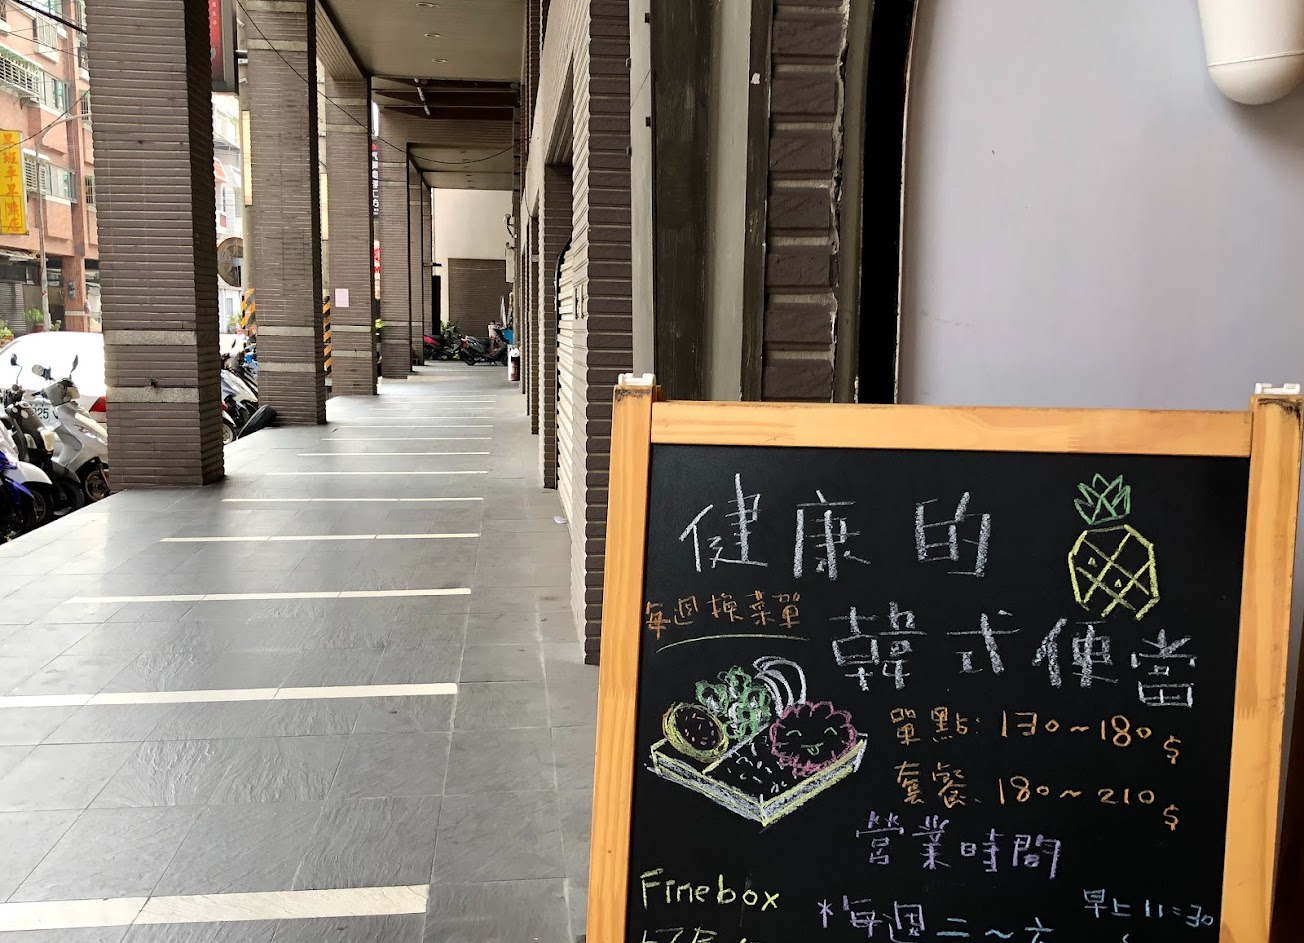 昱班車

健康的
每週換菜單
韓式便當
單點: 130~180$
套餐: 180~210$
營業時間
Finebox
*每週二~六
早上11:30